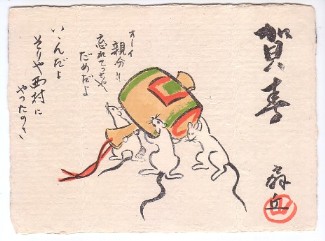 賀春
オーイ
親分を
忘れてっちゃ
だめだよ
いゝんだよ
そりゃ西村に
やったのさ